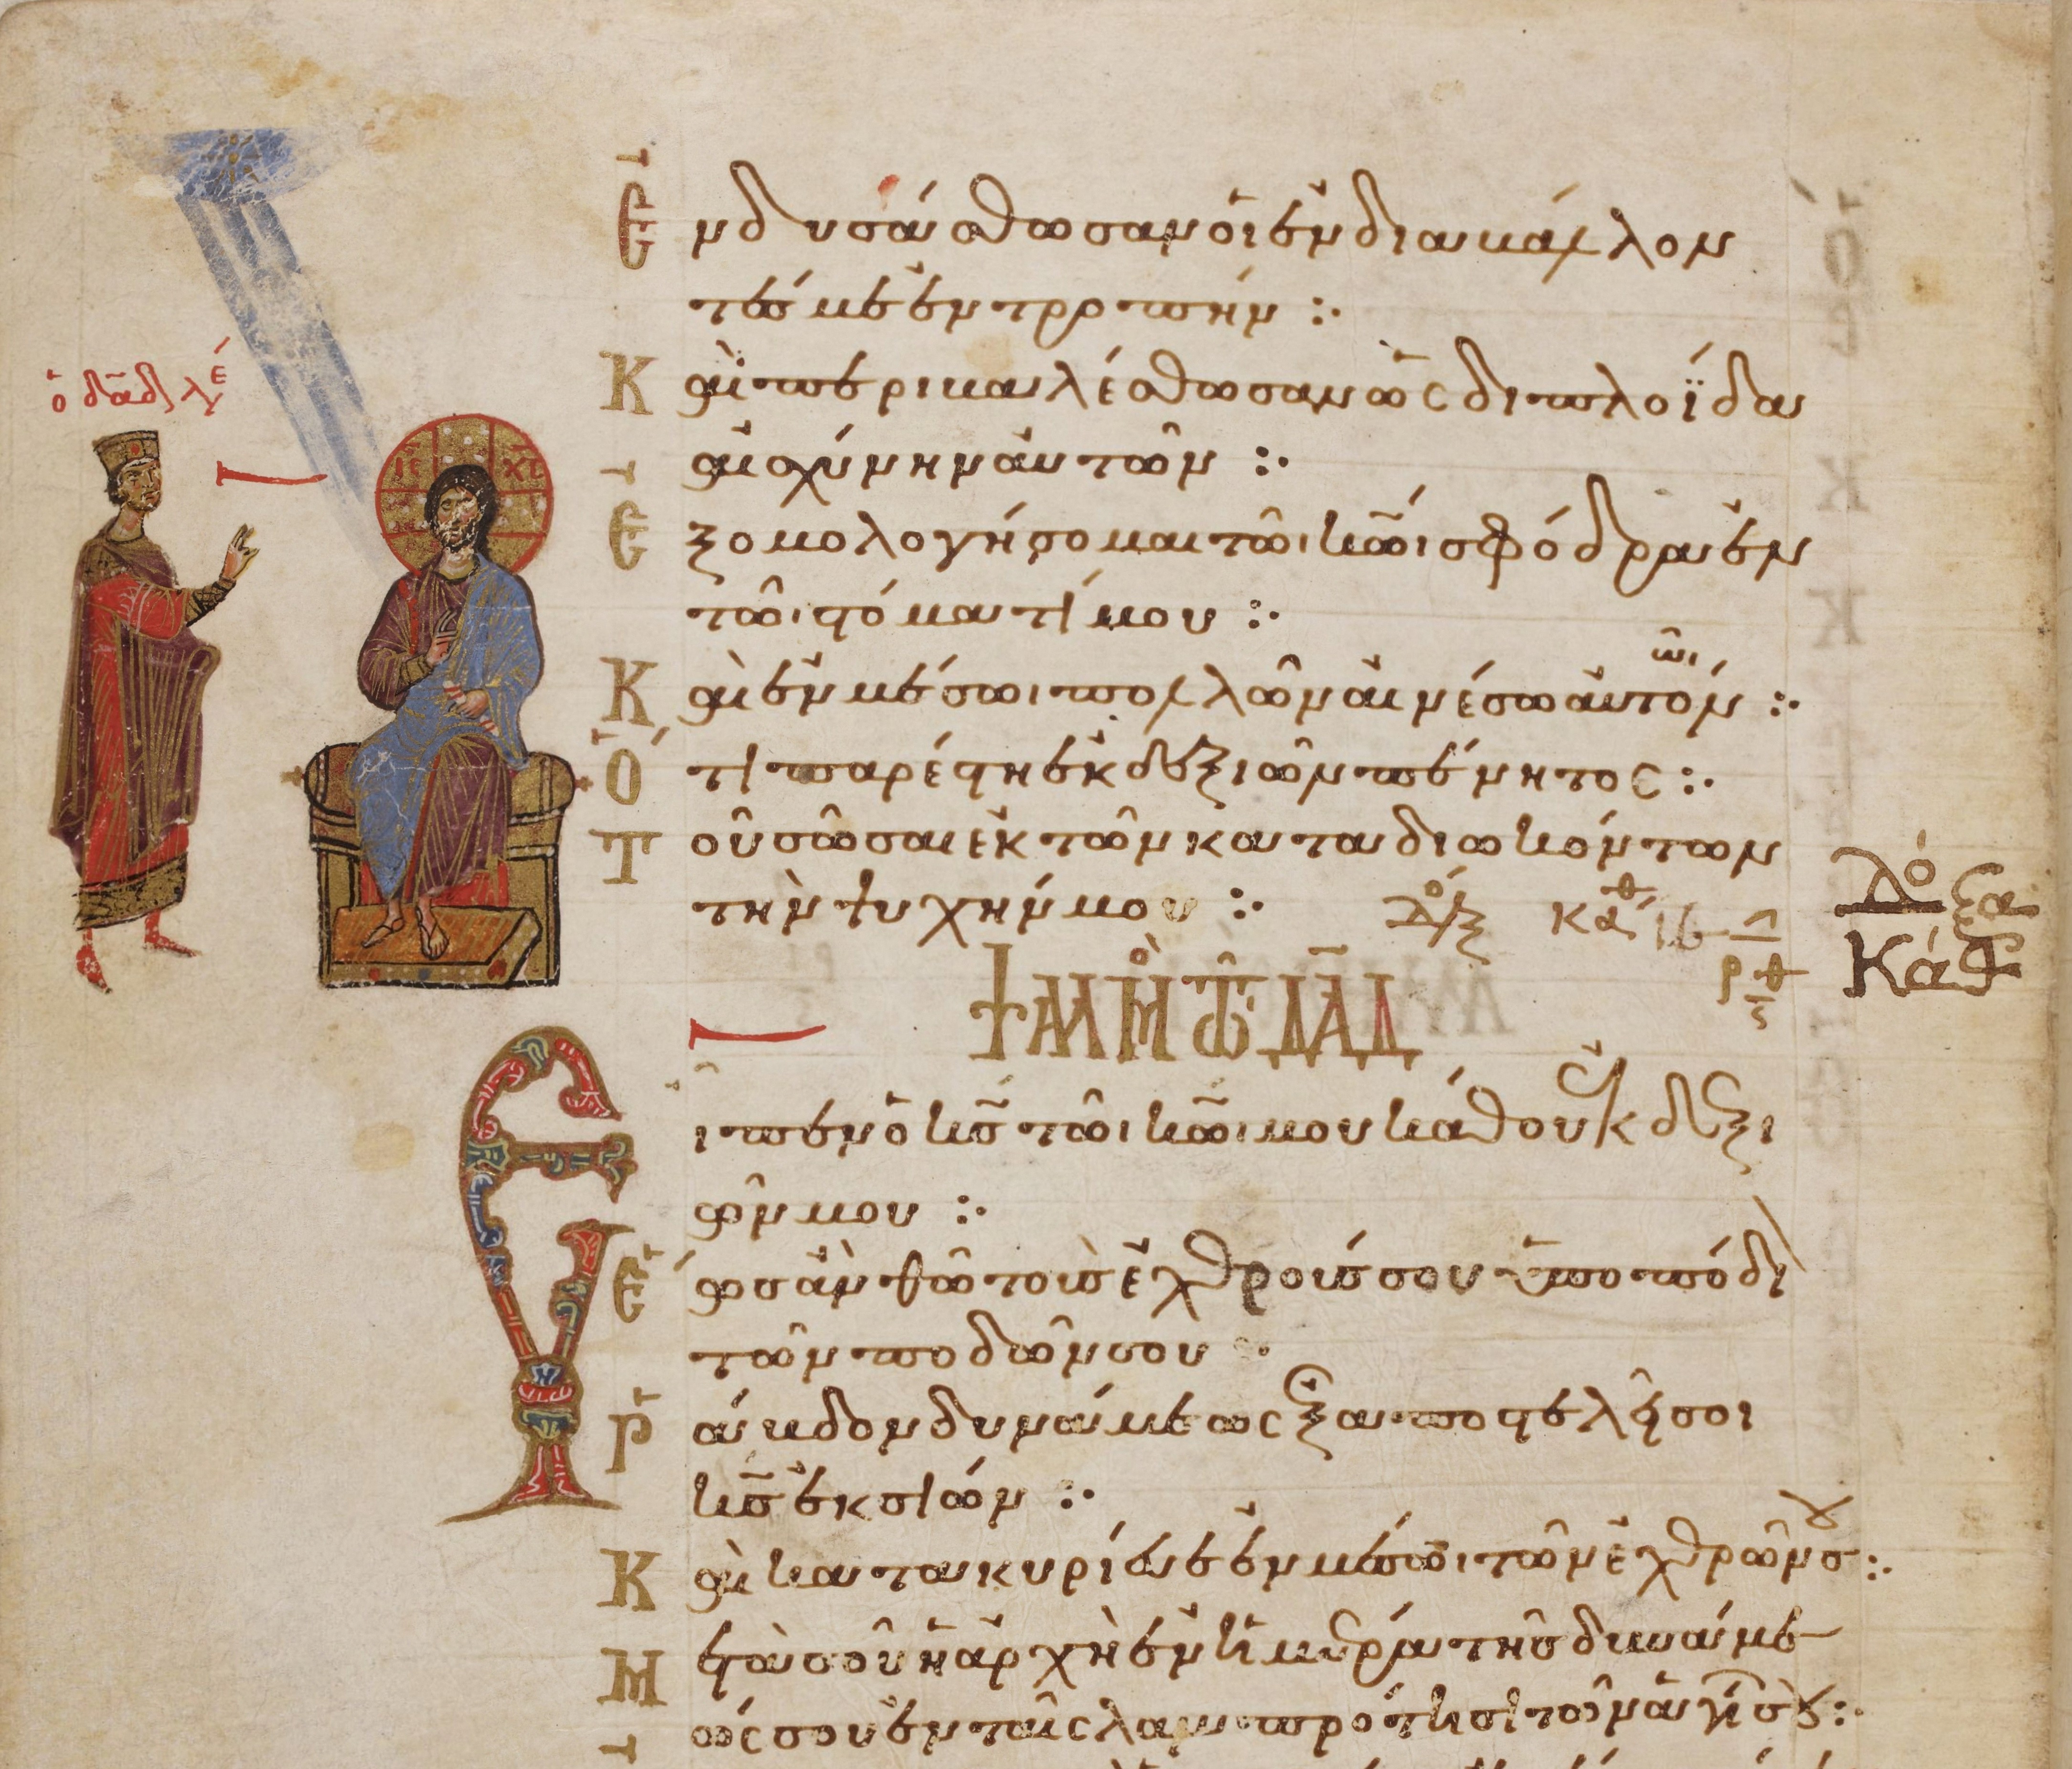 Ἐνδυσάσθωσαν οἱ ἐνδιαβάλλον
τές με ἐντροπήν :·
ὁ δα̅δ λέγ
Καὶ περιβαλέσθωσαν ὡς διπλοΐδα
αἰσχύνην αὐτῶν :·
Ἐξομολογήσομαι τῶι κ̅ω̅ι σφόδρα ἐν
τῶι στόματί μου :·
Καὶ ἐν μέσωι πολλῶν αἰνέσω αὐτόν :·
ῶι
Ὅτι παρέστη ἐκ δεξιῶν πένητος :·
Τοῦ σῶσαι ἐκ τῶν καταδιωκόντων
τὴν ψυχήν μου :·
δόξα
Κάθ
ΨΑΛΜῸC ΤΩ̂ ΔΑ̅Δ
Εἶπεν ὁ κ̅ς̅ τῶι κ̅ω̅ι μου κάθου ἐκ δεξι
ῶν μου :·
Ἕως ἂν θῶ τοὺς ἐχθρούς σου ὑποπόδι
τῶν ποδῶν σου :·
Ῥάβδον δυνάμεως ἐξαποστελεῖ σοι
κ̅ς̅ ἐκ σιών :·
Καὶ κατακυρίευε ἐν μέσωι τῶν ἐχθρῶν σου :·
Μετὰ σοῦ ἡ ἀρχὴ ἐν ἡμέρα τῆς δυνάμε
ώς σου ἐν ταῖς λαμπρότησι τῶν ἁγί σου :·